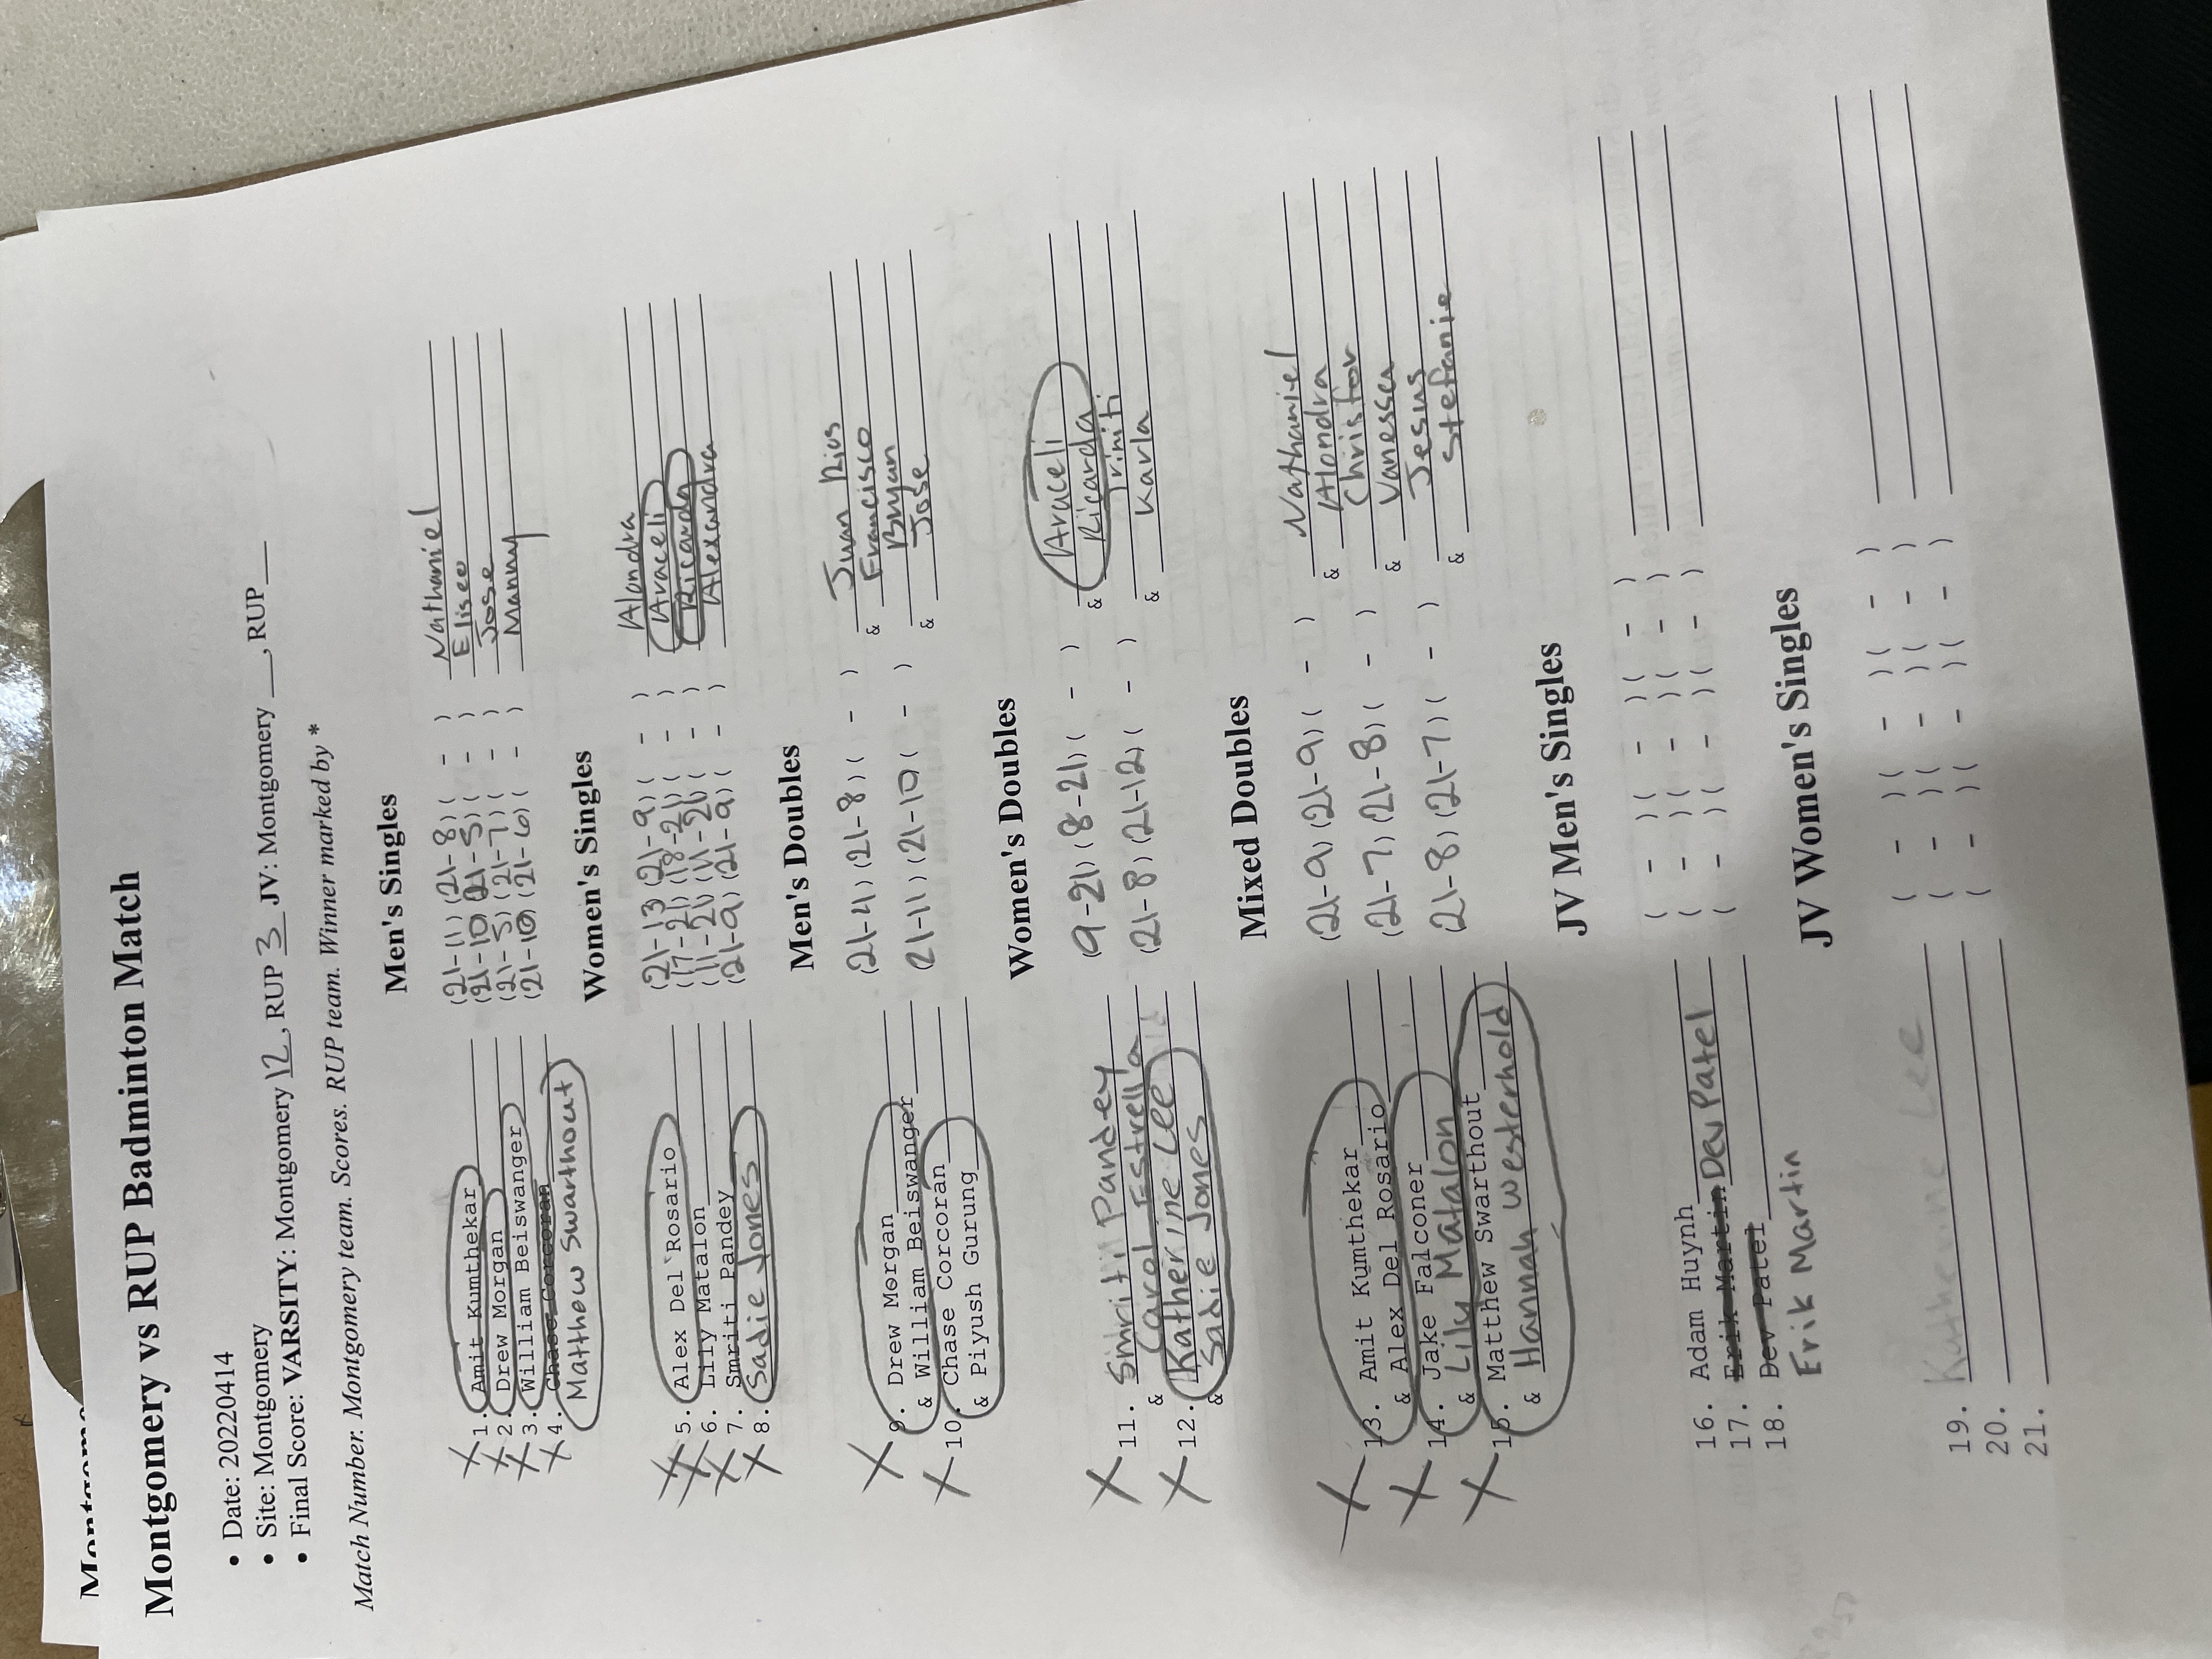 Montgomery vs RUP Badminton Match
• Date: 20220414
• Site: Montgomery
• Final Score: VARSITY: Montgomery 12, RUP 3 JV: Montgomery ___, RUP ___
Match Number. Montgomery team. Scores. RUP team. Winner marked by *
Men's Singles
X 1. Amit Kumthekar (21-11) (21-8) ( - ) Nathaniel
X 2. Drew Morgan (21-10) (21-5) ( - ) Eliseo
X 3. William Beiswanger (21-5) (21-7) ( - ) Jose
X 4. Chase Corcoran (21-10) (21-6) ( - ) Manny
Matthow Swarthout
Women's Singles
X 5. Alex Del Rosario (21-13) (21-9) ( - ) Alondra
X 6. Lily Matalon (17-21) (18-21) ( - ) Araceli
X 7. Smriti Pandey (11-21) (11-21) ( - ) Ricarda
X 8. Sadie Jones (21-9) (21-9) ( - ) Alexandra
Men's Doubles
X 9. Drew Morgan (21-4) (21-8) ( - ) Juan Rios
& William Beiswanger & Francisco
X 10. Chase Corcoran (21-11) (21-10) ( - ) Bryan
& Piyush Gurung & Jose
Women's Doubles
X 11. Smriti Pandey (9-21) (8-21) ( - ) Araceli
& Carol Estrella & Ricarda
X 12. Katherine Lee (21-8) (21-12) ( - ) Triniti
& Sadie Jones & Karla
Mixed Doubles
X 13. Amit Kumthekar (21-9) (21-9) ( - ) Nathaniel
& Alex Del Rosario & Alondra
X 14. Jake Falconer (21-7) (21-8) ( - ) Christor
& Lily Matalon & Vanessa
X 15. Matthew Swarthout (21-8) (21-7) ( - ) Jesus
& Hannah Westerhold & Stefanie
JV Men's Singles
16. Adam Huynh ( - )( - )( - )
17. Erik Martin Dev Patel ( - )( - )( - )
18. Dev Patel ( - )( - )( - )
Erik Martin
JV Women's Singles
19. Katherine Lee ( - )( - )( - )
20. ( - )( - )( - )
21. ( - )( - )( - )